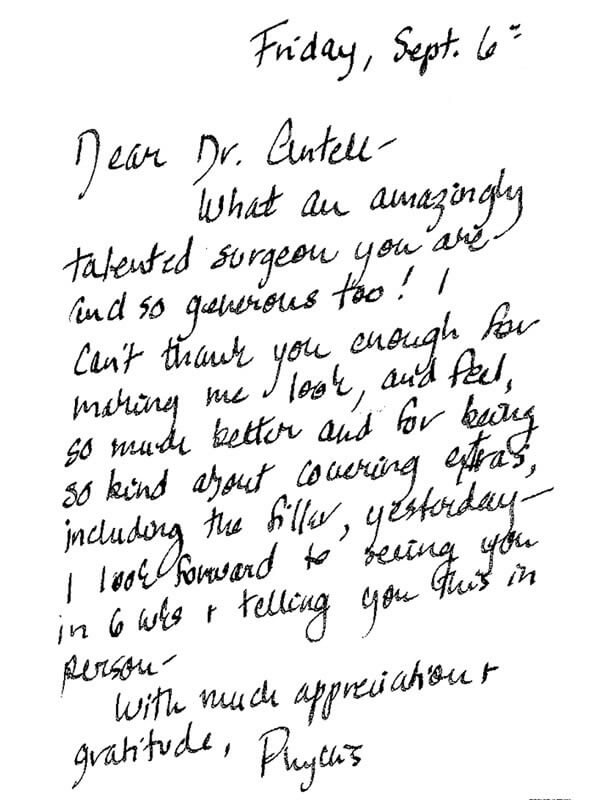 Friday, Sept. 6th
Dear Dr. Antell-
What an amazingly
talented surgeon you are
and so generous too! I
can't thank you enough for
making me look, and feel,
so much better and for being
so kind about covering extras,
including the filler, yesterday-
I look forward to seeing you
in 6 wks + telling you this in
person-
With much appreciation +
gratitude, Phyllis